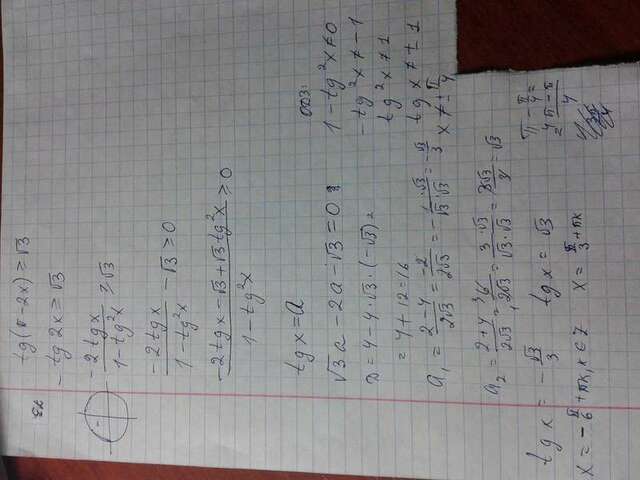 23
tg(π-2x)≥√3
-tg2x≥√3
-2tgx/1-tg²x ≥√3
-2tgx/1-tg²x -√3≥0
-2tgx-√3+√3tg²x/1-tg²x ≥0
tgx=a
√3a-2a-√3=0
D=4-4·√3·(-√3)=
=4+12=16
a₁=2-4/2√3=-2/2√3=-1·√3/√3·√3=-√3/3
a₂=2+4/2√3=6/2√3=3·√3/√3·√3=3√3/3=√3
tgx=-√3/3 tgx=√3
x=-π/6+πk, k∈Z x=π/3+πk
ОДЗ:
1-tg²x≠0
-tg²x≠-1
tg²x≠1
tgx≠±1
x≠±π/4
π-π/4=
=4π-π/4